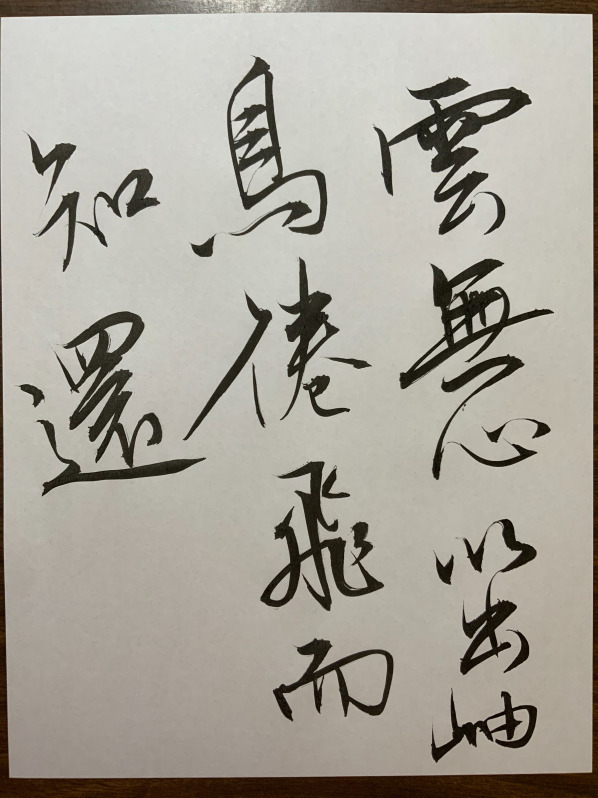 雲無心以出岫
鳥倦飛而
知還